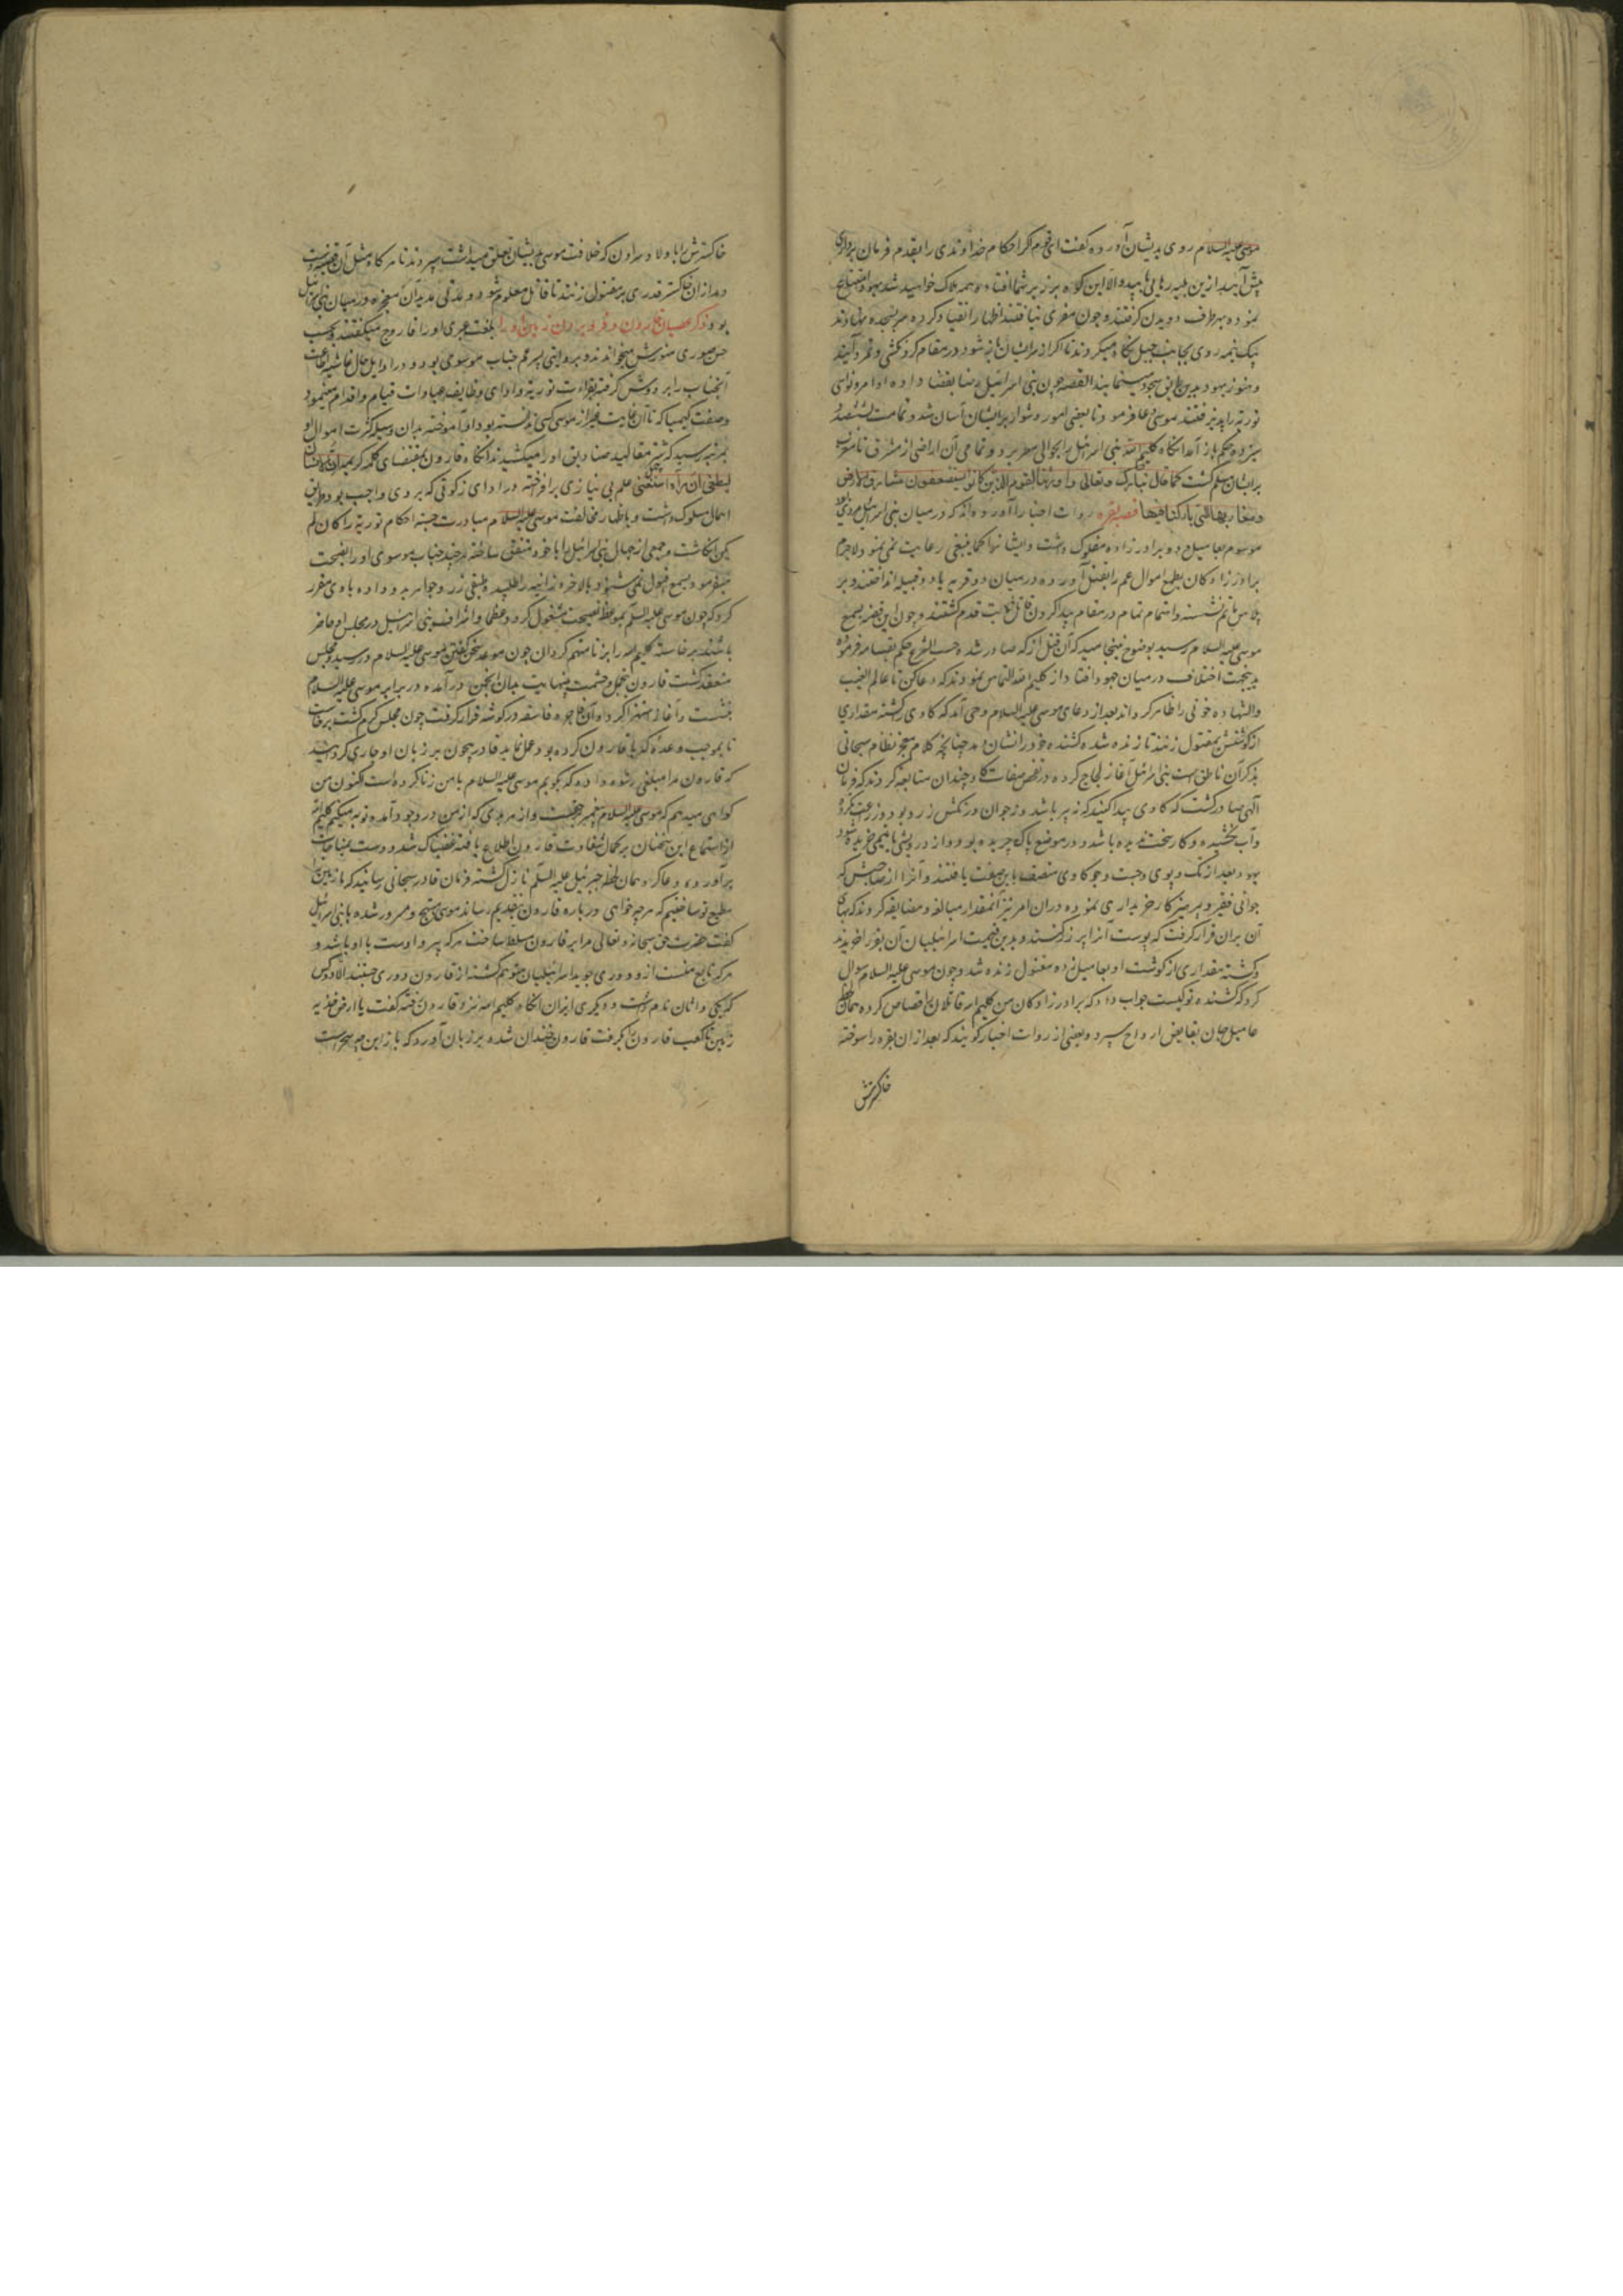 موسی علیه السلام روی بدیشان آورده گفت ای قوم اگر احکام خداوندی را بقدم فرمان برداری
پیش آیید ازین بلیه رهایی یابید والا این کوه بر زبر شما افتاده همه هلاک خواهید شد یهود
نموده بهر طرف دویدن گرفتند و چون مفری نیافتند اظهار انقیاد کرده سر بسجده نهادند
بیک نیمه روی بجانب جبل نگاه میکردند تا اگر از سر ایشان شود در مقام گردنکشی و تمرد آیند
و هنوز یهود بدین طریق سجود مینمایند القصه چون بنی اسرائیل رضا بقضا داده اوامر و نواهی
توریة را پذیرفتند موسی دعا فرمود تا بعضی امور دشوار بر ایشان آسان شد و تمامت ششصد و
سیزده حکم باز آمد آنگاه کلیم الله بنی اسرائیل را بحوالی مصر برد و تمامی آن اراضی از مشرق تا مغرب
بر ایشان مسلم گشت کما قال تبارک و تعالی و اورثنا القوم الذین کانوا یستضعفون مشارق الارض
و مغاربها التی بارکنا فیها قصه بقره روات اخبار آورده‌اند که در میان بنی اسرائیل مردی بود
موسوم بعامیل و دو برادرزاده مفلوک داشت و ایشانرا کما ینبغی رعایت نمی نمود و لاجرم
برادرزادکان بطمع اموال عم را بقتل آورده در میان دو قریه یا دو قبیله انداختند و بر
پلاس ماتم نشسته و اهتمام تمام در مقام پیدا کردن قاتل ثابت قدم گشتند و چون این قضیه بسمع
موسی علیه السلام رسید بوضوح نینجامید که آن قتل از که صادر شده حسب الشرع حکم بقسامه فرموده
بدینجهت اختلاف در میان جهود افتاد از کلیم الله التماس نمودند که دعا کن تا عالم الغیب
والشهاده خونی را ظاهر گرداند بعد از دعای موسی علیه السلام وحی آمد که گاوی کشته مقداری
از گوشتش بمقتول زنند تا زنده شده کشنده خود را نشان دهد چنانچه کلام معجز نظام سبحانی
بذکر آن ناطق است بنی اسرائیل آغاز لجاج کرده در تفحص صفات گاو چندان مبالغه کردند که فرمان
الهی صادر گشت که گاوی پیدا کنید که نه پیر باشد و نه جوان و رنگش زرد بود و زراعت نکرده
و آب نکشیده و کار سخت ندیده باشد و در موضع پاک چریده بود و از درویشی یا یتیمی خریده شود
یهود بعد از تک و پوی و جست و جو گاوی متصف باین صفت یافتند و آنرا از صاحبش که
جوانی فقیر و پرهیزکار خریداری نموده دران امر نیز آنمقدار مبالغه و مضایقه کردند که بهای
آن بران قرار گرفت که پوست آنرا پر زر کنند و بدین قیمت اسرائیلیان آن بقر را خریدند
و کشته مقداری از گوشت او بعامیل زده مقتول زنده شد و چون موسی علیه السلام سوال
کرد که کشنده تو کیست جواب داد که برادرزادکان من کلیم الله قاتلان را قصاص کرده همان لحظه
عامیل جان بقابض ارواح سپرد و بعضی از روات اخبار گویند که بعد از ان بقره را سوخته
خاکسترش
خاکسترش را باولاد هارون که خلافت موسی بدیشان تعلق میداشت سپردند تا هرگاه مثل آن قضیه
بعد ازان خاکستر قدری بر مقتول زنند تا قاتل معلوم شود و مدتی مدید آن معجزه در میان بنی اسرائیل
بود ذکر عصیان قارون و فرو بردن زمین او را بلغت عبری او را قاروح میگفتند و بحسب
حسن صوری منورش میخواندند و بروایتی پسر عم جناب موسوی بود و در اوایل حال غاشیه اطاعت
آنجناب را بر دوش گرفته بقراءت توریة و ادای وظایف عبادات قیام و اقدام مینمود
و صفت کیمیا که تا آن غایت غیر از موسی کسی ندانسته بود آموخته بدان وسیله کثرت اموال او
بمرتبه رسید که شتر مقالید صنادیق او را میکشیدند آنگاه قارون بمقتضای کلمه کریمه ان الانسان
لیطغی ان رآه استغنی علم بی نیازی برافراخته در ادای زکوتی که بر وی واجب بود طریق
اهمال مسلوک داشت و باظهار مخالفت موسی علیه السلام مبادرت جسته احکام توریة را کان لم
یکن انگاشت و جمعی از جهال بنی اسرائیل را با خود متفق ساخته هر چند جناب موسوی او را نصیحت
میفرمود بسمع قبول نمی شنود بالاخره زانیه را طلبیده مبلغی زر و جواهر بدو داده با وی مقرر
کرد که چون موسی علیه السلام بموعظه و نصیحت مشغول گردد و عظما و اشراف بنی اسرائیل در مجلس او حاضر
باشند برخاسته کلیم الله را بزنا متهم گردان چون موعد سخن گفتن موسی علیه السلام در رسید و مجلس
منعقد گشت قارون بتجمل و حشمت بینهایت بدان انجمن درآمده در برابر موسی علیه السلام
بنشست و آغاز استهزا کرد و آن فاجره فاسقه در گوشه قرار گرفت چون مجلس گرم گشت برخاست
تا بموجب وعده که با قارون کرده بود عمل نماید قادر بیچون بر زبان او جاری گردانید
که قارون مرا مبلغی رشوه داده که بگویم موسی علیه السلام با من زنا کرده است اکنون من
گواهی میدهم که موسی علیه السلام پیغمبر حق است و از هر بدی که از من در وجود آمده توبه میکنم کلیم الله
از استماع این سخنان بر کمال شقاوت قارون اطلاع یافته غضبناک شد و دست بمناجات
برآورده دعا کرد همان لحظه جبرئیل علیه السلام نازل گشته فرمان قادر سبحانی رسانید که ما زمین را
مطیع تو ساختیم که هرچه خواهی درباره قارون بتقدیم رساند موسی مبتهج و مسرور شده با بنی اسرائیل
گفت حضرت حق سبحانه و تعالی مرا بر قارون مسلط ساخت هرکه پیرو اوست با او باشد و
هرکه تابع منست ازو دوری جوید اسرائیلیان متوهم گشته از قارون دوری جستند الا دو کس
که یکی داثان نام داشت و دیگری ابیران آنگاه کلیم الله نزد قارون رفته گفت یا ارض خذیه
زمین تا کعب قارون بگرفت قارون خندان شده بر زبان آورد که باز این چه سحر است